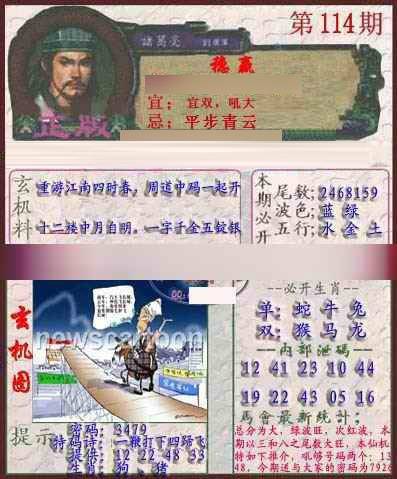 第114期
諸葛亮
稳赢
宜：宜双，吼大
忌：平步青云
正版
玄机料
重游江南四时春，周道中码一起开
十二楼中月自明。一字千金五锭银
本期必开
尾数：2468159
波色：蓝 绿
五行：水 金 土
玄机图
必开生肖
单：蛇 牛 兔
双：猴 马 龙
内部泄码
12 41 23 10 34 44
19 22 43 05 48 16
馬會最新統計；
总分为大，绿波旺，次红波，本
期以三和八之尾数大旺，本仙机
特如下推介，吼够号码两个：13
48，今期送与大家的密码为7926
提示
密码：3479
特码诗：一鞭打下四蹄飞
提供：12 22 48 33
生肖：狗．猪